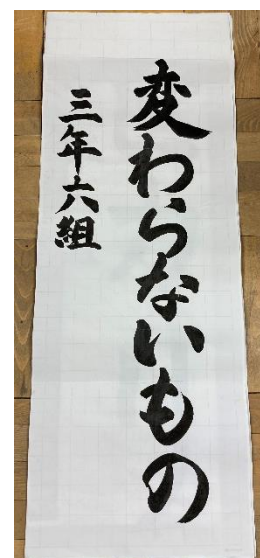 変わらないもの
三年六組